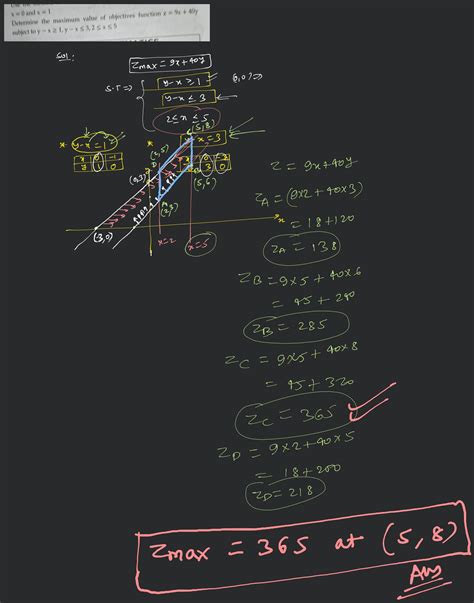 x = 0 and x = 1
Determine the maximum value of objectives function z = 9x + 40y
subject to y − x ≥ 1, y − x ≤ 3, 2 ≤ x ≤ 5
Sol:
Zmax = 9x+40y
S.T ⇒
y-x ≥ 1
(0,0) ⇒
y-x ≤ 3
2 ≤ x ≤ 5
(5,8)
y-x = 1
x = 3
x 0 -1
y 1 0
(2,5)
(0,3)
(5,6)
(2,3)
(3,0)
x
x=2
x=5
Z = 9x+40y
ZA = (9x2+40x3)
= 18+120
ZA = 138
ZB = 9x5+40x6
= 45+240
ZB = 285
ZC = 9x5+40x8
= 45+320
ZC = 365
ZD = 9x2+40x5
= 18+200
ZD = 218
Zmax = 365 at (5,8)
Ans